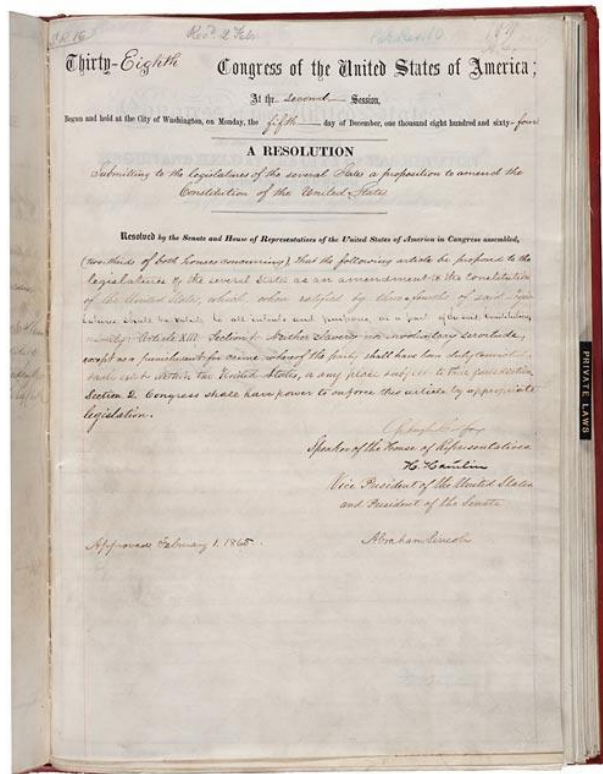 Thirty-Eighth Congress of the United States of America;
At the second Session,
Begun and held at the City of Washington, on Monday, the fifth day of December, one thousand eight hundred and sixty-four
A RESOLUTION
Submitting to the legislatures of the several States a proposition to amend the
Constitution of the United States
Resolved by the Senate and House of Representatives of the United States of America in Congress assembled,
(two-thirds of both houses concurring), That the following article be proposed to the
legislatures of the several States as an amendment to the Constitution
of the United States, which, when ratified by three-fourths of said legis-
latures shall be valid, to all intents and purposes, as a part of the said Constitution,
namely: Article XIII. Section 1. Neither slavery nor involuntary servitude,
except as a punishment for crime whereof the party shall have been duly convicted,
shall exist within the United States, or any place subject to their jurisdiction.
Section 2. Congress shall have power to enforce this article by appropriate
legislation.
Schuyler Colfax
Speaker of the House of Representatives
H. Hamlin
Vice President of the United States
and President of the Senate
Approved February 1. 1865.
Abraham Lincoln
PRIVATE LAWS